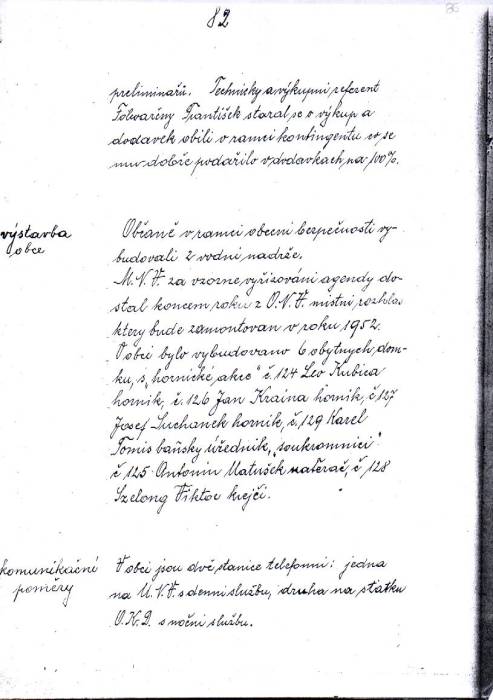 82
preliminářů. Technický a výkupní referent
Folwarčny František staral se o výkup a
dodavek obili v ramci kontingentu co se
mu dobře podařilo v dodavkach na 100%.
výstavba
obce
Občaně v ramci obecni bezpečnosti vy-
budovali 2 vodni nadrže.
M.N.V. za vzorne vyřizováni agendy do-
stal koncem roku z O.N.V. mistni rozhlas
ktery bude zamontovan v roku 1952.
V obci bylo vybudovano 6 obytnych dom-
ku, s „hornické akce" č. 124 Leo Kubica
hornik, č. 126 Jan Kraina hornik, č 127
Josef Suchanek hornik, č. 129 Karel
Tomis baňsky uřednik, „soukromnici"
č 125 Antonin Matušek natěrač, č 128
Szelong Viktor krejči.
komunikačné
poměry
V obci jsou dvě stanice telefonni: jedna
na M.N.V. s denni službu, druha na statku
O.K.D. s nočni službu.